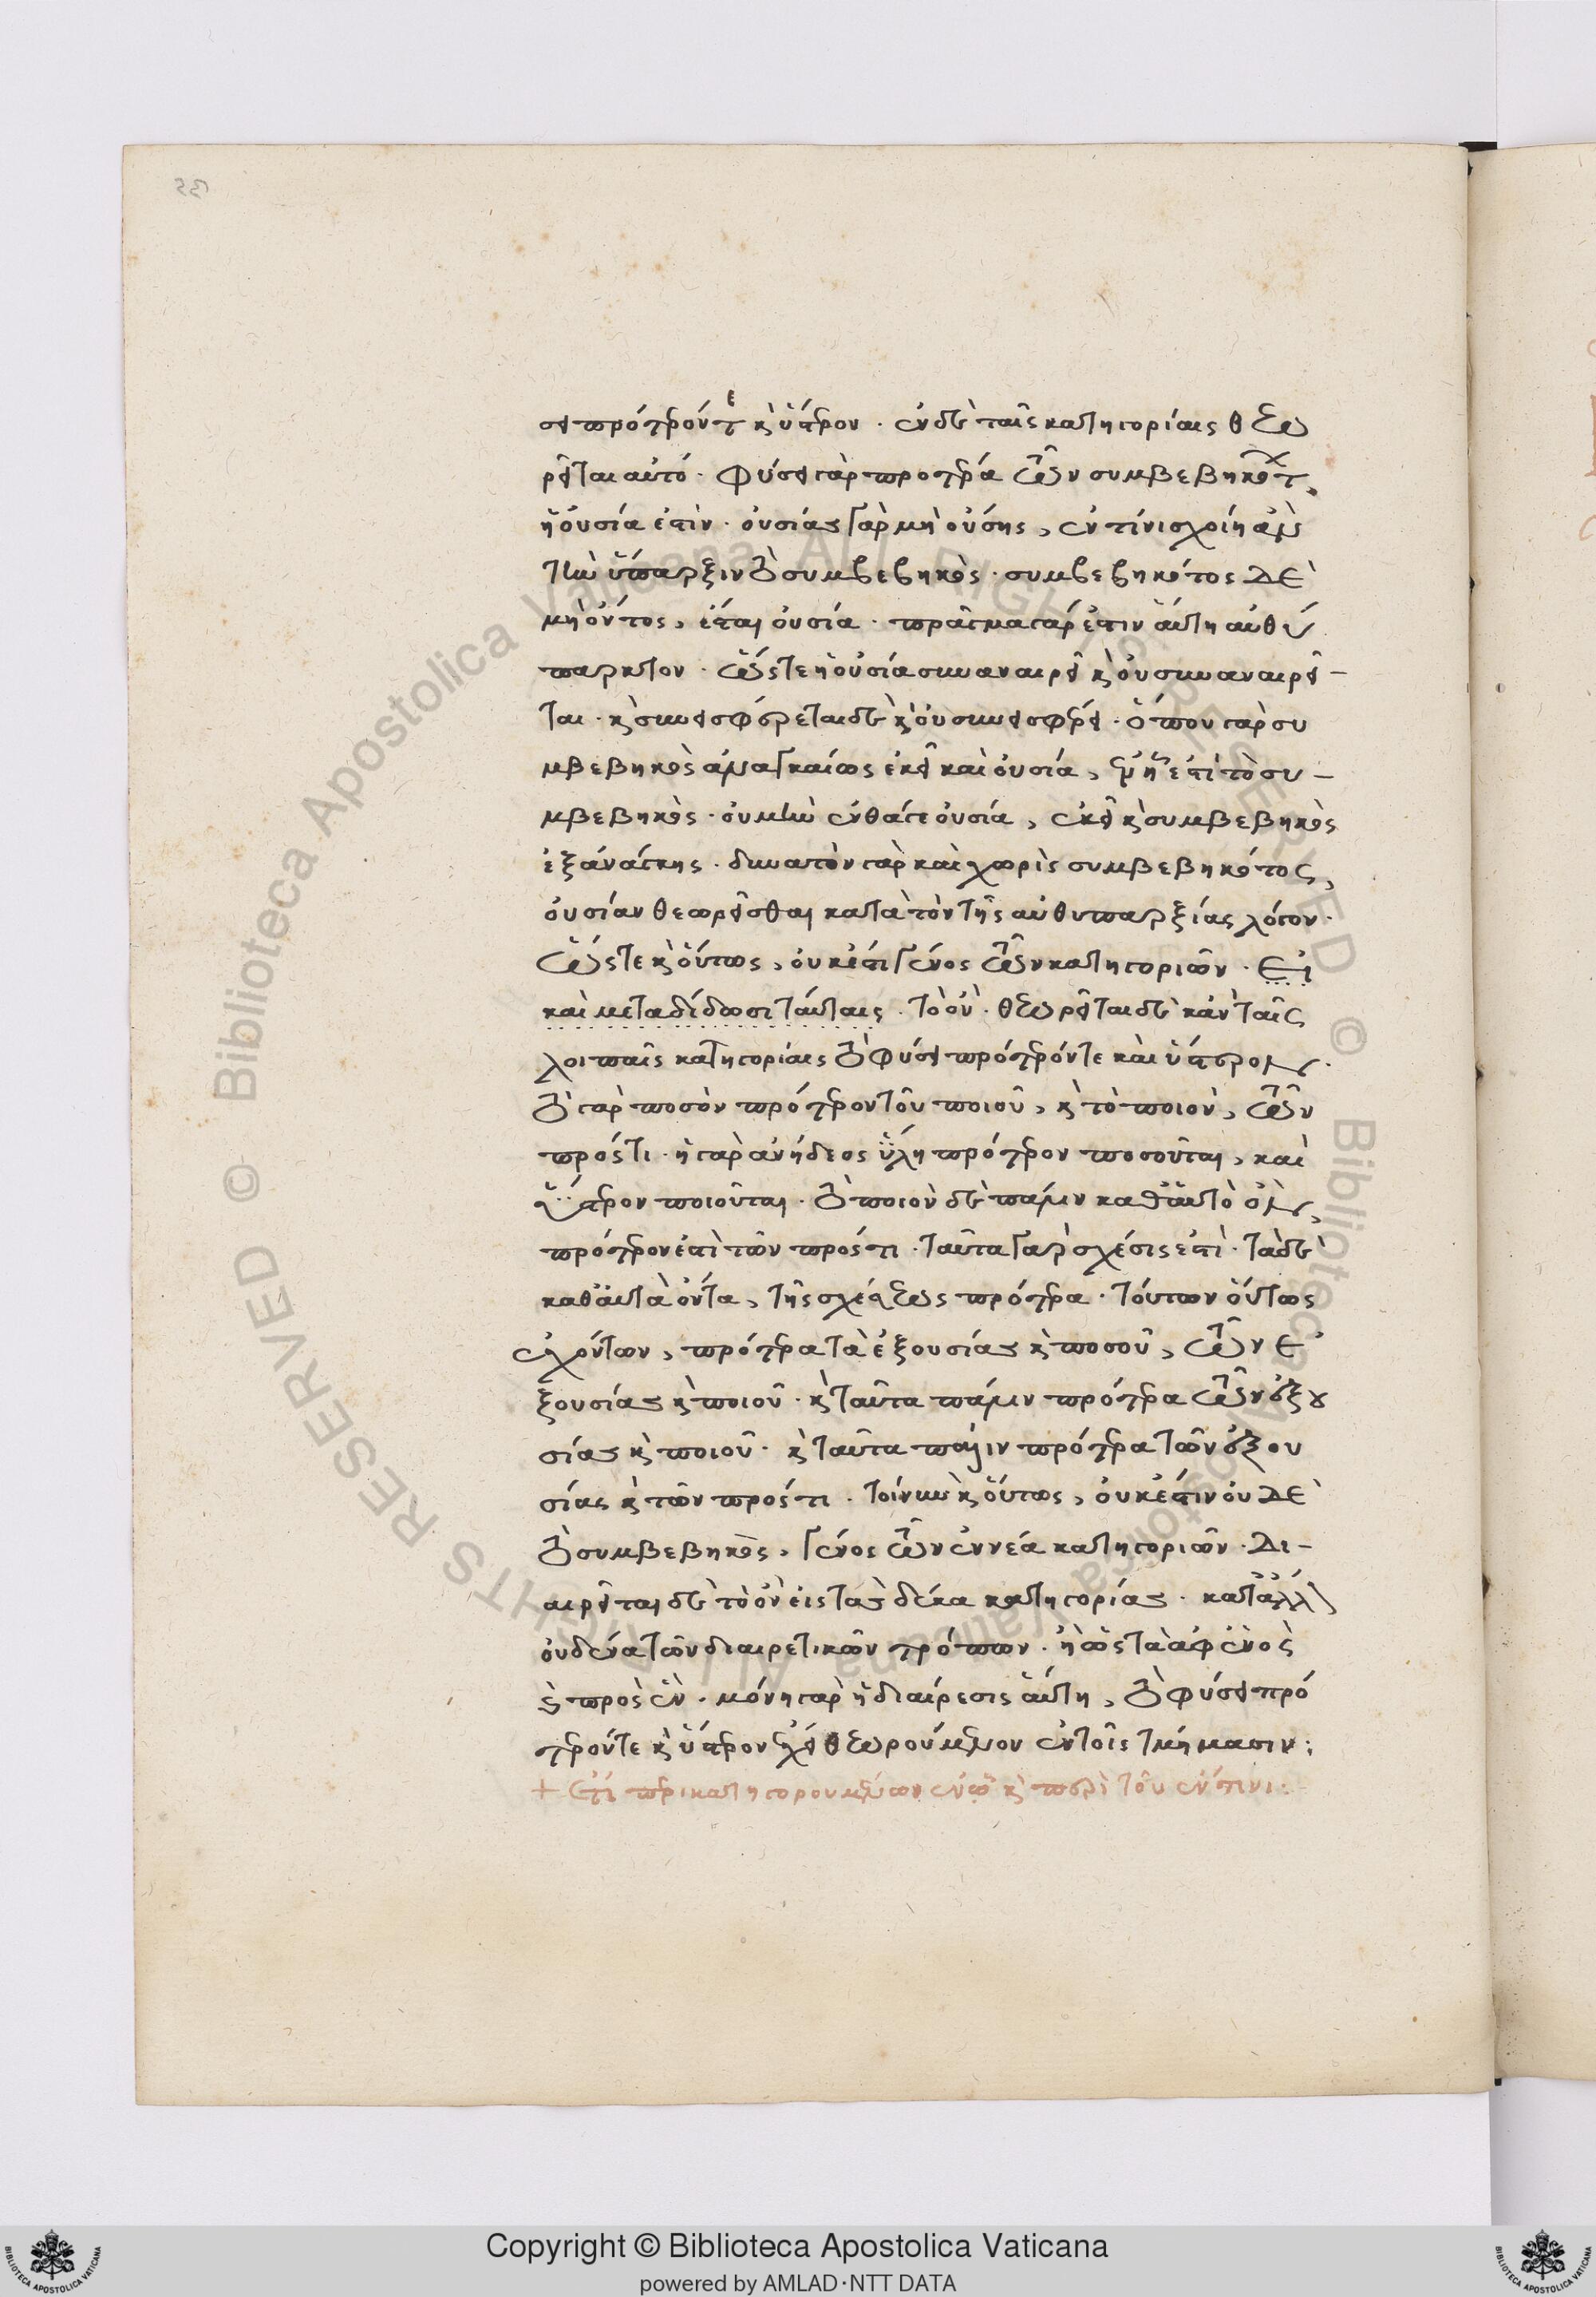 σει πρότερόν τε καὶ ὕστερον. ἐν δὲ ταῖς κατηγορίαις θεω
ρεῖται αὐτό. φύσει γὰρ προτέρα τῶν συμβεβηκότων
ἡ οὐσία ἐστὶν. οὐσίας γὰρ μὴ οὔσης, ἐν τίνι σχοίη ἂν
τὴν ὕπαρξιν τὸ συμβεβηκὸς. συμβεβηκότος δὲ
μὴ ὄντος, ἔσται οὐσία. πρᾶγμα γάρ ἐστιν αὕτη αὐθύ
παρκτον. ὥστε ἡ οὐσία συναναιρεῖ καὶ οὐ συναναιρεῖ-
ται. καὶ συνεισφέρεται δὲ καὶ οὐ συνεισφέρει. ὅπου γὰρ συ
μβεβηκὸς ἀναγκαίως ἐκεῖ καὶ οὐσία, ἐν ᾗ ἐστὶ τὸ συ-
μβεβηκὸς. οὐ μὴν ἔνθά γε οὐσία, ἐκεῖ καὶ συμβεβηκὸς
ἐξανάγκης. δυνατὸν γὰρ καὶ χωρὶς συμβεβηκότος,
οὐσίαν θεωρεῖσθαι κατὰ τὸν τῆς αὐθυπαρξίας λόγον.
ὥστε καὶ οὕτως, οὐκ ἔστι γένος τῶν κατηγοριῶν. εἰ
καὶ μεταδίδωσι ταύταις. τὸ ὄν. θεωρεῖται δὲ κἂν ταῖς
λοιπαῖς κατηγορίαις τὸ φύσει πρότερόν τε καὶ ὕστερον.
τὸ γὰρ ποσὸν πρότερον τοῦ ποιοῦ, καὶ τὸ ποιὸν, τῶν
πρός τι. ἡ γὰρ ἀνείδεος ὕλη πρότερον ποσοῦται, καὶ
ὕστερον ποιοῦται. τὸ ποιὸν δὲ πάλιν καθ' αὑτὸ ὂν,
πρότερον ἐστὶ τῶν πρός τι. ταῦτα γὰρ σχέσις ἐστὶ. τὰ δὲ
καθ' αὑτὰ ὄντα, τῆς σχέσεως πρότερα. τούτων οὕτως
ἐχόντων, πρότερα τὰ ἐξ οὐσίας καὶ ποσοῦ, τῶν ἐ
ξουσίας καὶ ποιοῦ. καὶ ταῦτα πάλιν πρότερα τῶν ἐξ οὐ
σίας καὶ ποιοῦ. καὶ ταῦτα πάλιν πρότερα τῶν ἐξ οὐ
σίας καὶ τῶν πρός τι. τοίνυν καὶ οὕτως, οὐκ ἔστιν οὐδὲ
τὸ συμβεβηκὸς, γένος τῶν ἐννέα κατηγοριῶν. δι-
αιρεῖται δὲ τὸ ὂν εἰς τὰς δέκα κατηγορίας. κατ' ἄλλον
οὐδένα τῶν διαιρετικῶν τρόπων. ἢ ὡς τὰ ἀφ' ἑνὸς
καὶ πρὸς ἓν. μόνη γὰρ ἡ διαίρεσις αὕτη, τὸ φύσει πρό
τερόν τε καὶ ὕστερον ἔχει θεωρούμενον ἐν τοῖς τμήμασιν:
+ ἔτι περὶ κατηγορουμένων ἐν ᾧ καὶ περὶ τοῦ ἔν τινι: